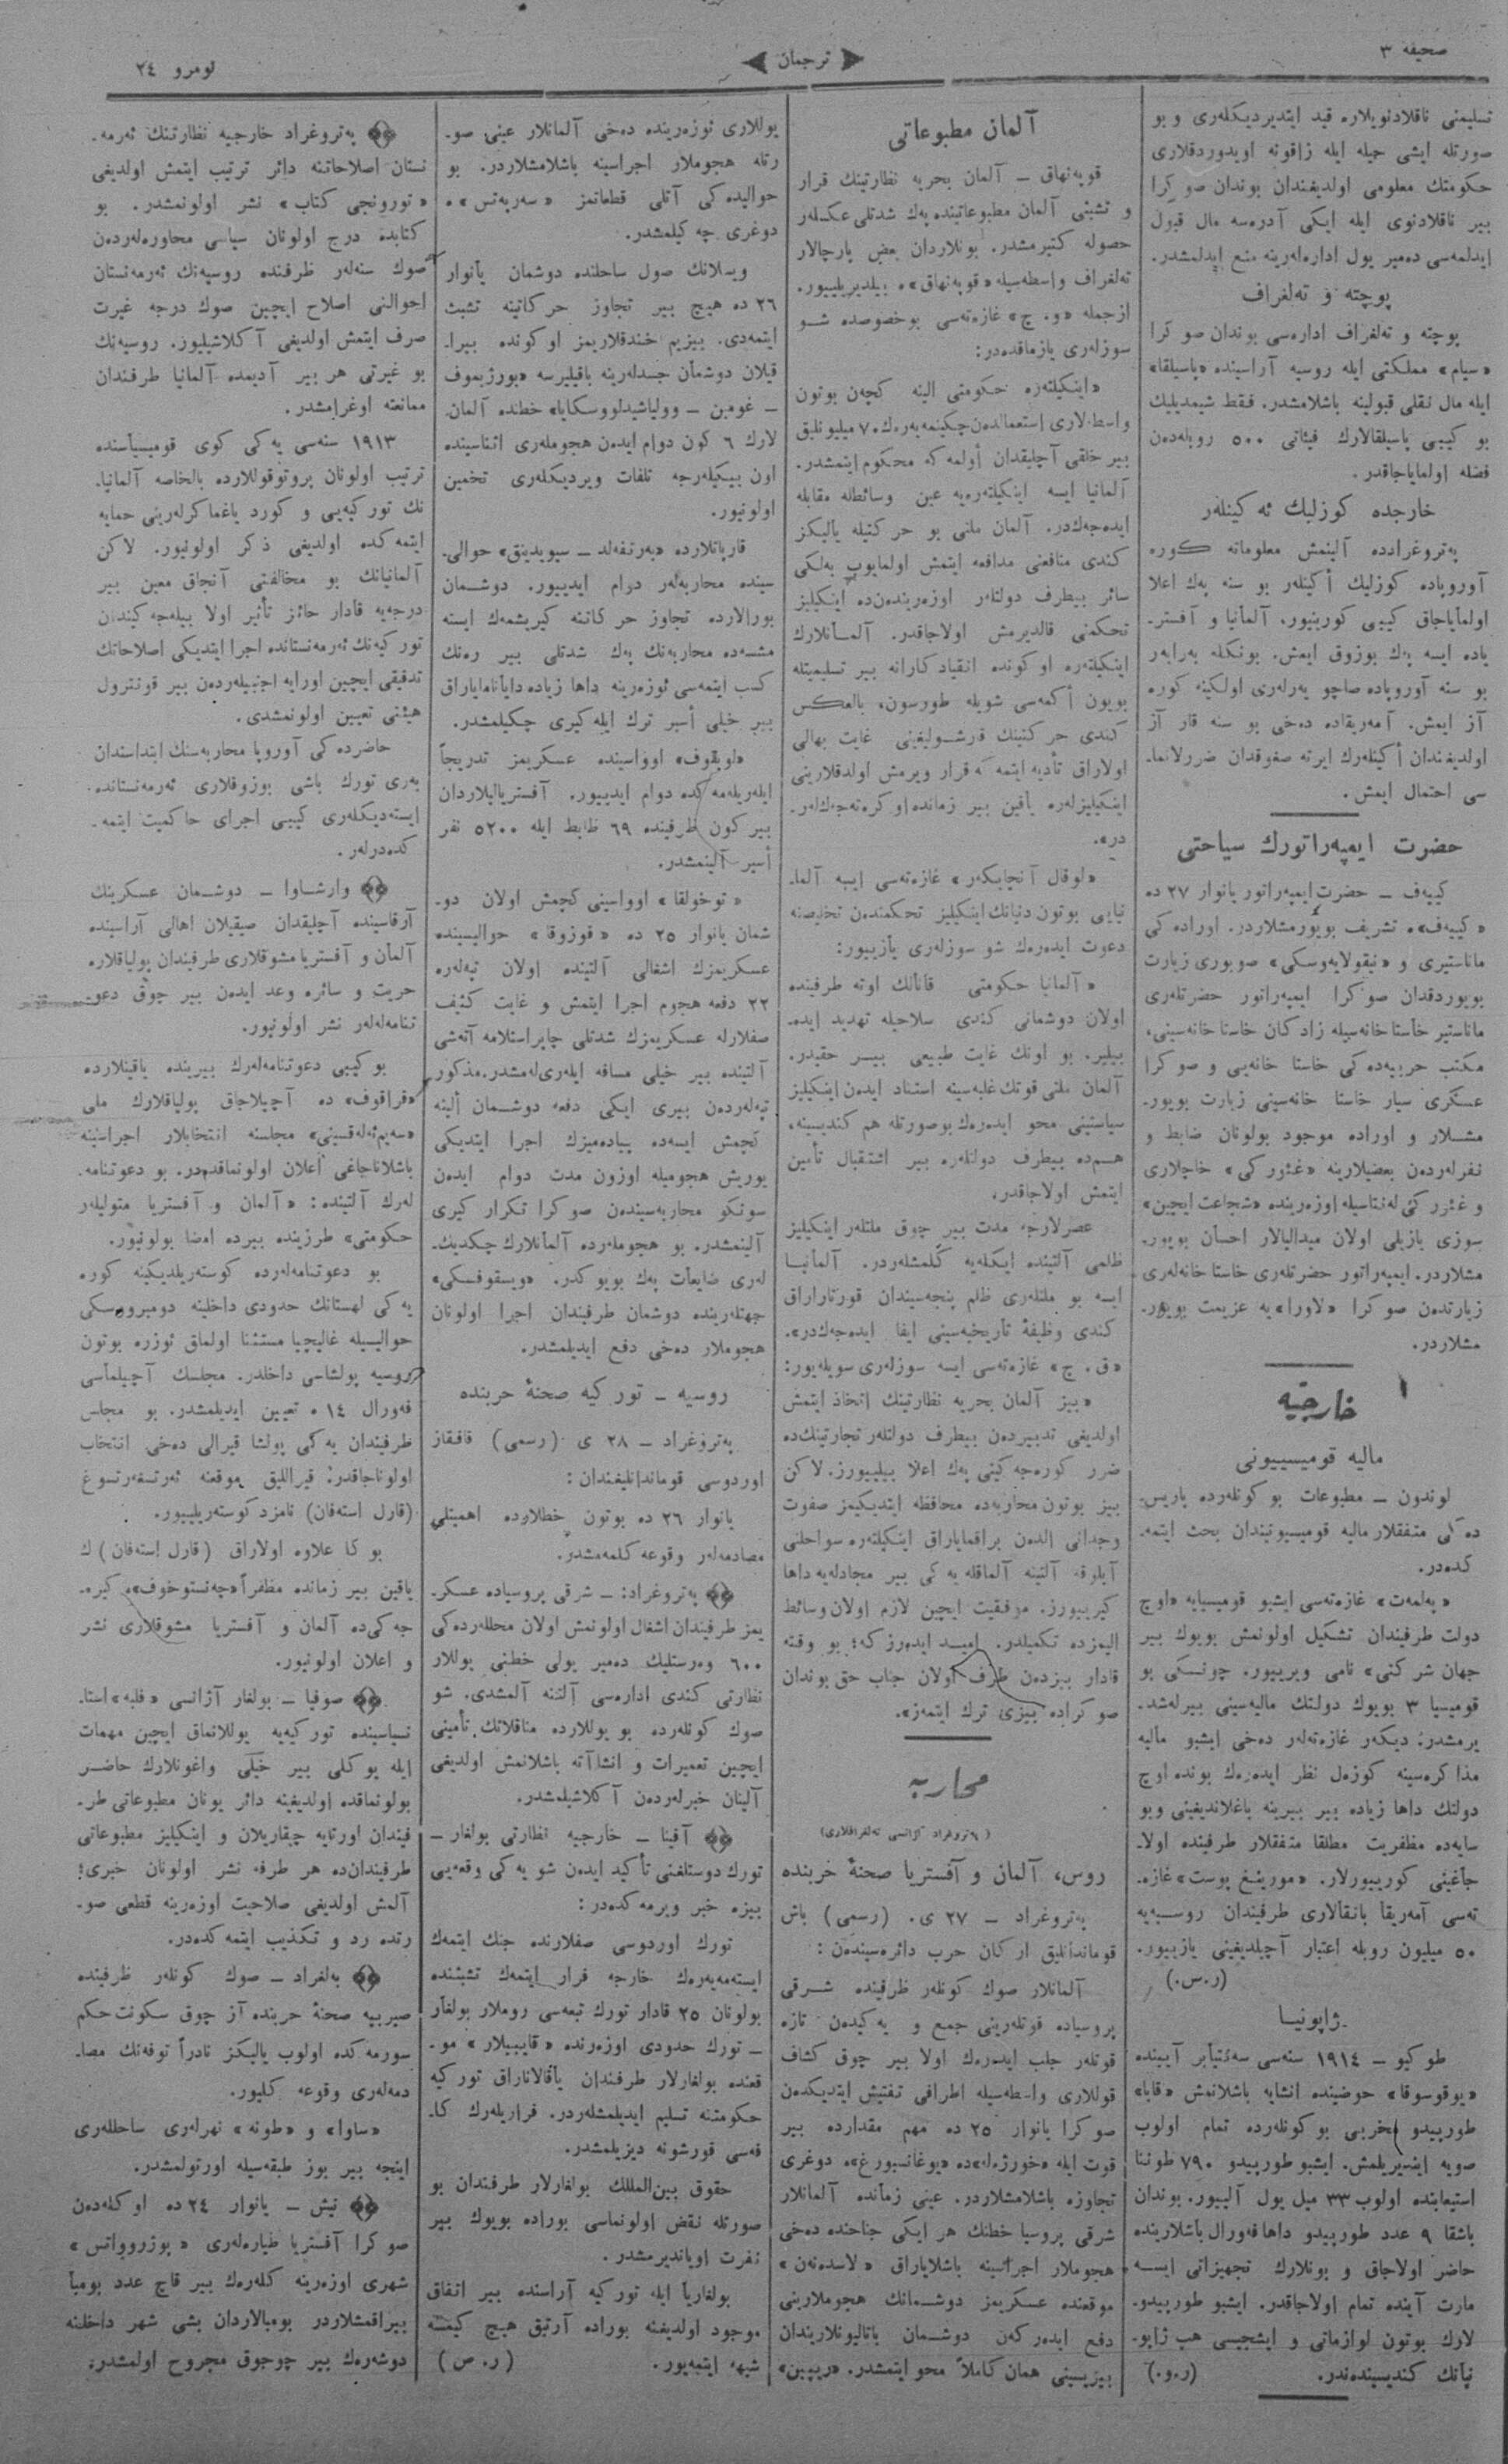 صحیفه ٣
ترجمان
نومرو ٢٤
تسلیمنی ناقلادنویلاره قید ایتدیردیکلەری و بو
صورتله ایشی حیله ایله زاقونه اویدوردقلاری
حکومتك معلومی اولدیغندان بوندان صوڭرا
بیر ناقلادنوی ایله ایکی آدرەسه مال قبول
ایدلمەسی دەمیر یول ادارەلەرینه منع ایدلمشدر.
پوچته و تەلغراف
پوچته و تەلغراف ادارەسی بوندان صوڭرا
«سیام» مملکتی ایله روسیه آراسینده «پاسیلقا»
ایله مال نقلی قبولینه باشلامشدر. فقط شیمدیلیك
بو کیبی پاسیلقالارك فیئاتی ٥٠٠ روبلەدن
فضله اولمایاجاقدر.
خارجده کوزلیك ئەکینلەر
پەتروغرادده آلینمش معلوماته کوره
آوروپاده کوزلیك أکینلەر بو سنه پەك اعلا
اولمایاجاق کیبی کورینیور. آلمانیا و آفستر-
یاده ایسه پەك بوزوق ایمش. بونکله بەرابەر
بو سنه آوروپاده صاچو یەرلەری اولکینه کوره
آز ایمش. آمەریقاده دەخی بو سنه قار آز
اولدیغندان أکینلەرك ایرته صغوقدان ضررلانما-
سی احتمال ایمش.
حضرت ایمپەراتورك سیاحتی
کییەف – حضرت ایمپەراتور یانوار ٢٧ ده
«کییەف»ه تشریف بویورمشلاردر. اوراده کی
ماناستیری و «نیقولایەوسکی» صوبوری زیارت
بویوردقدان صوڭرا ایمپەراتور حضرتلەری
ماناستیر خاستا خانەسیله زادکان خاستا خانەسینی،
مکتب حربیەده کی خاستا خانەیی و صوڭرا
عسکری سیار خاستا خانەسینی زیارت بویور-
مشلار و اوراده موجود بولونان ضابط و
نفرلەردن بعضیلارینه «غئورکی» خاچلاری
و غئورکی لەنتاسیله اوزەرینده «شجاعت ایچین»
سوزی یازیلی اولان میدالیالار احسان بویور-
مشلاردر. ایمپەراتور حضرتلەری خاستا خانەلەری
زیارتدن صوڭرا «لاورا»یه عزیمت بویور-
مشلاردر.
خارجیه
مالیه قومیسییونی
لوندون – مطبوعات بو کونلەرده پاریس-
ده کی متفقلار مالیه قومیسیونیندان بحث ایتمه-
کدەدر.
«یەلمەت» غازەتەسی ایشبو قومیسیایه «اوچ
دولت طرفیندان تشکیل اولونمش بویوك بیر
جهان شرکتی» نامی ویرییور. چونکی بو
قومیسیا ٣ بویوك دولتك مالیەسینی بیرلەشد-
یرمشدر؛ دیکەر غازەتەلەر دەخی ایشبو مالیه
مذاکرەسینه کوزەل نظر ایدەرەك بونده اوچ
دولتك داها زیاده بیر بیرینه باغلاندیغینی و بو
سایەده مظفریت مطلقا متفقلار طرفینده اولا-
جاغینی کورییورلار. «مورینغ پوست» غازە-
تەسی آمەریقا بانقالاری طرفیندان روسیەیه
٥٠ میلیون روبله اعتبار آچیلدیغینی یازییور.
(ر.س.)
ژاپونیا
طوکیو – ١٩١٤ سنەسی سەنتیابر آییندە
«یوقوسوقا» حوضینده انشایه باشلانمش «قابا»
طورپیدو مخربی بو کونلەرده تمام اولوب
صویه ایندیریلمش. ایشبو طورپیدو ٧٩٠ طوننا
استیعابنده اولوب ٣٣ میل یول آلییور. بوندان
باشقا ٩ عدد طورپیدو داها فەورال باشلارینده
حاضر اولاجاق و بونلارك تجهیزاتی ایسه
مارت آینده تمام اولاجاقدر. ایشبو طورپیدو-
لارك بوتون لوازماتی و ایشجیسی هپ ژاپو-
نیانك کندیسیندەندر. (ر.و.)
آلمان مطبوعاتی
قوپەنهاق – آلمان بحریه نظارتینك قرار
و تشبثی آلمان مطبوعاتینده پەك شدتلی عکسلەر
حصوله کتیرمشدر. بونلاردان بعض پارچالار
تەلغراف واسطەسیله «قوپەنهاق»ه بیلدیریلییور.
ازجمله «و. چ» غازەتەسی بو خصوصده شو
سوزلەری یازماقدەدر:
«اینکیلتەره حکومتی الینه کچەن بوتون
واسطەلاری استعمالدەن چکینمەیەرەك ٧٠ میلیونلیق
بیر خلقی آچلیقدان أولمەکه محکوم ایتمشدر.
آلمانیا ایسه اینکیلتەرەیه عین وسائطله مقابله
ایدەجەكدر. آلمان ملتی بو حرکتیله یالیکز
کندی منافعنی مدافعه ایتمش اولمایوب بەلکی
سائر بیطرف دولتلەر اوزەریندەن ده اینکیلیز
تحکمنی قالدیرمش اولاجاقدر. آلمانلارك
اینکیلتەره اوکونده انقیادکارانه بیر تسلیمیتله
بویون أکمەسی شویله طورسون، بالعکس
کندی حرکتینك قرشولیغینی غایت بهالی
اولاراق تأدیه ایتمەکه قرار ویرمش اولدقلارینی
اینکیلیزلەره یاقین بیر زمانده اوکرەتەجەكلەر-
در».
«لوقال آنچایکەر» غازەتەسی ایسه آلما-
نیایی بوتون دنیانك اینکیلیز تحکمندەن تخلیصنه
دعوت ایدەرەك شو سوزلەری یازییور:
«آلمانیا حکومتی قانالك اوته طرفینده
اولان دوشمانی کندی سلاحیله تهدید ایده-
بیلیر. بو اونك غایت طبیعی بیر حقیدر.
آلمان ملتی قوتك غلبەسینه استناد ایدەن اینکیلیز
سیاستینی محو ایدەرەك بو صورتله هم کندیسینه،
هم ده بیطرف دولتلەره بیر استقبال تأمین
ایتمش اولاجاقدر.
عصرلارجه مدت بیر چوق ملتلەر اینکیلیز
ظلمی آلتینده ایکلەیه کلمشلەردر. آلمانیا
ایسه بو ملتلەری ظلم پنجەسیندان قورتاراراق
کندی وظیفۀ تأریخیەسینی ایفا ایدەجەكدر».
«ق. چ» غازەتەسی ایسه سوزلەری سویلەیور:
«بیز آلمان بحریه نظارتینك اتخاذ ایتمش
اولدیغی تدبیردەن بیطرف دولتلەر تجارتینك ده
ضرر کورەجەکینی پەك اعلا بیلییورز. لاکن
بیز بوتون محاربەده محافظه ایتدیکیمز صفوت
وجدانی الدەن براقمایاراق اینکیلتەره سواحلنی
آبلوقه آلتینه آلماقله یەکی بیر مجادلەیه داها
کیرییورز. موفقیت ایچین لازم اولان وسائط
الیمزده تکمیلدر. امید ایدەرز که؛ بو وقته
قادار بیزدەن طرف اولان جناب حق بوندان
صوڭراده بیزی ترك ایتمەز».
محاربه
(پەتروغراد آژانسی تەلغرافلاری)
روس، آلمان و آفستریا صحنۀ حربنده
پەتروغراد – ٢٧ ی. (رسمی) باش
قوماندانلیق ارکان حرب دائرەسیندەن:
آلمانلار صوك کونلەر ظرفینده شرقی
پروسیاده قوتلەرینی جمع و یەکیدەن تازه
قوتلەر جلب ایدەرەك اولا بیر چوق کشاف
قوللاری واسطەسیله اطرافی تفتیش ایتدیکدەن
صوڭرا یانوار ٢٥ ده مهم مقدارده بیر
قوت ایله «خورژەلە»ده «یوغانسبورغ»ه دوغری
تجاوزه باشلامشلاردر. عینی زمانده آلمانلار
شرقی پروسیا خطنك هر ایکی جناحنده دەخی
هجوملار اجراسینه باشلایاراق «لاسدەنەن»
موقعنده عسکریمز دوشمانك هجوملارینی
دفع ایدەرکەن دوشمان باتالیونلاریندان
بیزیسینی همان کاملاً محو ایتمشدر. «ریپین»
یوللاری ئوزەرینده دەخی آلمانلار عینی صو-
رتله هجوملار اجراسینه باشلامشلاردر. بو
حوالیدەکی آتلی قطعاتمز «سەرپەتس»ه
دوغری چەکیلمشدر.
ویسلانك صول ساحلنده دوشمان یانوار
٢٦ ده هیچ بیر تجاوز حرکاتینه تشبث
ایتمەدی. بیزیم خندقلاریمز اوکونده بیرا-
قیلان دوشمان جسدلەرینه باقیلیرسه «بورژیموف
– غومین – وولیاشیدلووسکایا» خطنده آلمان-
لارك ٦ کون دوام ایدەن هجوملەری اثناسینده
اون بیکیلەرجه تلفات ویردیکلەری تخمین
اولونیور.
قارپاتلارده «بەرتفەلد – سیویدنیق» حوالی-
سینده محاربەلەر دوام ایدییور. دوشمان
بورالارده تجاوز حرکاتنه کیریشمەك ایسته
مشسەده محاربەنك پەك شدتلی بیر رەنك
کسب ایتمەسی ئوزەرینه داها زیاده دایانامایاراق
بیر خیلی أسیر ترك ایله کیری چکیلمشدر.
«لوپقوف» اوواسینده عسکریمز تدریجاً
ایلەریلەمەکده دوام ایدییور. آفستریالیلاردان
بیر کون ظرفینده ٦٩ ظابط ایله ٥٢٠٠ نفر
أسیر آلینمشدر.
«توخولقا» اوواسینی کچمش اولان دو-
شمان یانوار ٢٥ ده «قوزوقا» حوالیسینده
عسکریمزك اشغالی آلتینده اولان تپەلەره
٢٢ دفعه هجوم اجرا ایتمش و غایت کثیف
صفلارله عسکریمزك شدتلی چاپراستلامه آتەشی
آلتینده بیر خیلی مسافه ایلەریلەمشدر. مذکور
تپەلەردەن بیری ایکی دفعه دوشمان ألینه
کچمش ایسەده پیادەمیزك اجرا ایتدیکی
یوریش هجومیله اوزون مدت دوام ایدەن
سونکو محاربەسیندەن صوڭرا تکرار کیری
آلینمشدر. بو هجوملەرده آلمانلارك چکدیك-
لەری ضایعات پەك بویوکدر. «ویسقوفسکی»
جهتلەرینده دوشمان طرفیندان اجرا اولونان
هجوملار دەخی دفع ایدیلمشدر.
روسیه – تورکیه صحنۀ حربنده
پەتروغراد – ٢٨ ی. (رسمی) قافقاز
اوردوسی قوماندانلیغندان:
یانوار ٢٦ ده بوتون خطلارده اهمیتلی
مصادمەلەر وقوعه کلمەمشدر.
پەتروغراد: – شرقی پروسیاده عسکر-
یمز طرفیندان اشغال اولونمش اولان محللەردەکی
٦٠٠ وەرستلیك دەمیر یولی خطنی یوللار
نظارتی کندی ادارەسی آلتنه آلمشدی. شو
صوك کونلەرده بو یوللارده مناقلاتك تأمینی
ایچین تعمیرات و انشاآته باشلانمش اولدیغی
آلینان خبرلەردەن آکلاشیلمشدر.
آفینا – خارجیه نظارتی بولغار –
تورك دوستلغنی تأکید ایدەن شو یەکی وقعەیی
بیزه خبر ویرمەکدەدر:
تورك اوردوسی صفلارنده جنك ایتمەك
ایستەمەیەرەك خارجه فرار ایتمەك تشبثنده
بولونان ٢٥ قادار تورك تبعەسی روملار بولغار
– تورك حدودی اوزەرنده «قاپییلار» مو-
قعنده بولغارلار طرفندان یاقالاناراق تورکیه
حکومتنه تسلیم ایدیلمشلەردر. فراریلەرك کا-
فەسی قورشونه دیزیلمشدر.
حقوق بین‌المللك بولغارلار طرفندان بو
صورتله نقض اولونماسی بوراده بویوك بیر
نفرت اویاندیرمشدر.
بولغاریا ایله تورکیه آراسنده بیر اتفاق
موجود اولدیغنه بوراده آرتیق هیچ کیمسه
شبهه ایتمەیور. (ر.ص)
پەتروغراد خارجیه نظارتنك ئەرمه-
نستان اصلاحاتنه دائر ترتیب ایتمش اولدیغی
«تورونجی کتاب» نشر اولونمشدر. بو
کتابده درج اولونان سیاسی محاورەلەردەن
صوك سنەلەر ظرفنده روسیەنك ئەرمەنستان
احوالنی اصلاح ایچین صوك درجه غیرت
صرف ایتمش اولدیغی آکلاشیلیوز. روسیەنك
بو غیرتی هر بیر آدیمده آلمانیا طرفندان
ممانعته اوغرامشدر.
١٩١٣ سنەسی یەکی کوی قومیسیاسنده
ترتیب اولونان پروتوقوللارده بالخاصه آلمانیا-
نك تورکیەیی و کورد یاغماکرلەرینی حمایه
ایتمەکده اولدیغی ذکر اولونیور. لاکن
آلمانیانك بو مخالفتی آنجاق معین بیر
درجەیه قادار حائز تأثیر اولا بیلەجەکیندان
تورکیەنك ئەرمەنستانده اجرا ایتدیکی اصلاحاتك
تدقیقی ایچین اورایه اجنبیلەردەن بیر قونترول
هیئتی تعیین اولونمشدی.
حاضردەکی آوروپا محاربەسنك ابتداسندان
بەری تورك باشی بوزوقلاری ئەرمەنستانده
ایستەدیکلەری کیبی اجرای حاکمیت ایتمه-
کدەدرلەر.
وارشاوا – دوشمان عسکرینك
آرقاسینده آچلیقدان صیقیلان اهالی آراسینده
آلمان و آفستریا مشوقلاری طرفیندان پولیاقلاره
حریت و سائره وعد ایدەن بیر چوق دعو-
تنامەلەلەر نشر اولونیور.
بو کیبی دعوتنامەلەرك بیرینده یاقینلارده
«قراقوف» ده آچیلاجاق پولیاقلارك ملی
«سەیم ئەلەقسیی» مجلسنه انتخابلار اجراسینه
باشلاناجاغی أعلان اولونماقدەدر. بو دعوتنامه-
لەرك آلتینده: «آلمان و آفستریا متولیلەر
حکومتی» طرزینده بیرده امضا بولونیور.
بو دعوتنامەلەرده کوستەریلدیکینه کوره
یەکی لهستانك حدودی داخلینه دومبرووسکی
حوالیسیله غالیچیا مستثنا اولماق ئوزره بوتون
روسیه پولشاسی داخلدر. مجلسك آچیلماسی
فەورال ١٤ ه تعیین ایدیلمشدر. بو مجلس
طرفیندان یەکی پولشا قیرالی دەخی انتخاب
اولوناجاقدر؛ قیراللیق موقعنه ئەرتسغەرتسوغ
(قارل استەفان) نامزد کوستەریلییور.
بوکا علاوه اولاراق (قارل استەفان) ك
یاقین بیر زمانده مظفراً «چەنستوخوف»ه کیره-
جەکی ده آلمان و آفستریا مشوقلاری نشر
و اعلان اولونیور.
صوفیا – بولغار آژانسی «فلبه» استا-
نسیاسینده تورکیەیه یوللانماق ایچین مهمات
ایله یوکلی بیر خیلی واغونلارك حاضر
بولونماقده اولدیغینه دائر یونان مطبوعاتی طر-
فیندان اورتایه چیقاریلان و اینکیلیز مطبوعاتی
طرفیندان ده هر طرفه نشر اولونان خبری؛
آلمش اولدیغی صلاحیت اوزەرینه قطعی صو-
رتده رد و تکذیب ایتمەکدەدر.
بەلغراد – صوك کونلەر ظرفینده
صیربیه صحنۀ حربنده آز چوق سکونت حکم
سورمەکده اولوب یالیکز نادراً توفەنك مصا-
دمەلەری وقوعه کلیور.
«ساوا» و «طونه» نهرلەری ساحللەری
اینجه بیر بوز طبقەسیله اورتولمشدر.
نیش – یانوار ٢٤ ده اوکلەدەن
صوڭرا آفستریا طیارەلەری «بوژوروواتس»
شهری اوزەرینه کلەرەك بیر قاچ عدد بومبا
بیراقمشلاردر بومبالاردان بشی شهر داخلنه
دوشەرەك بیر چوجوق مجروح اولمشدر.